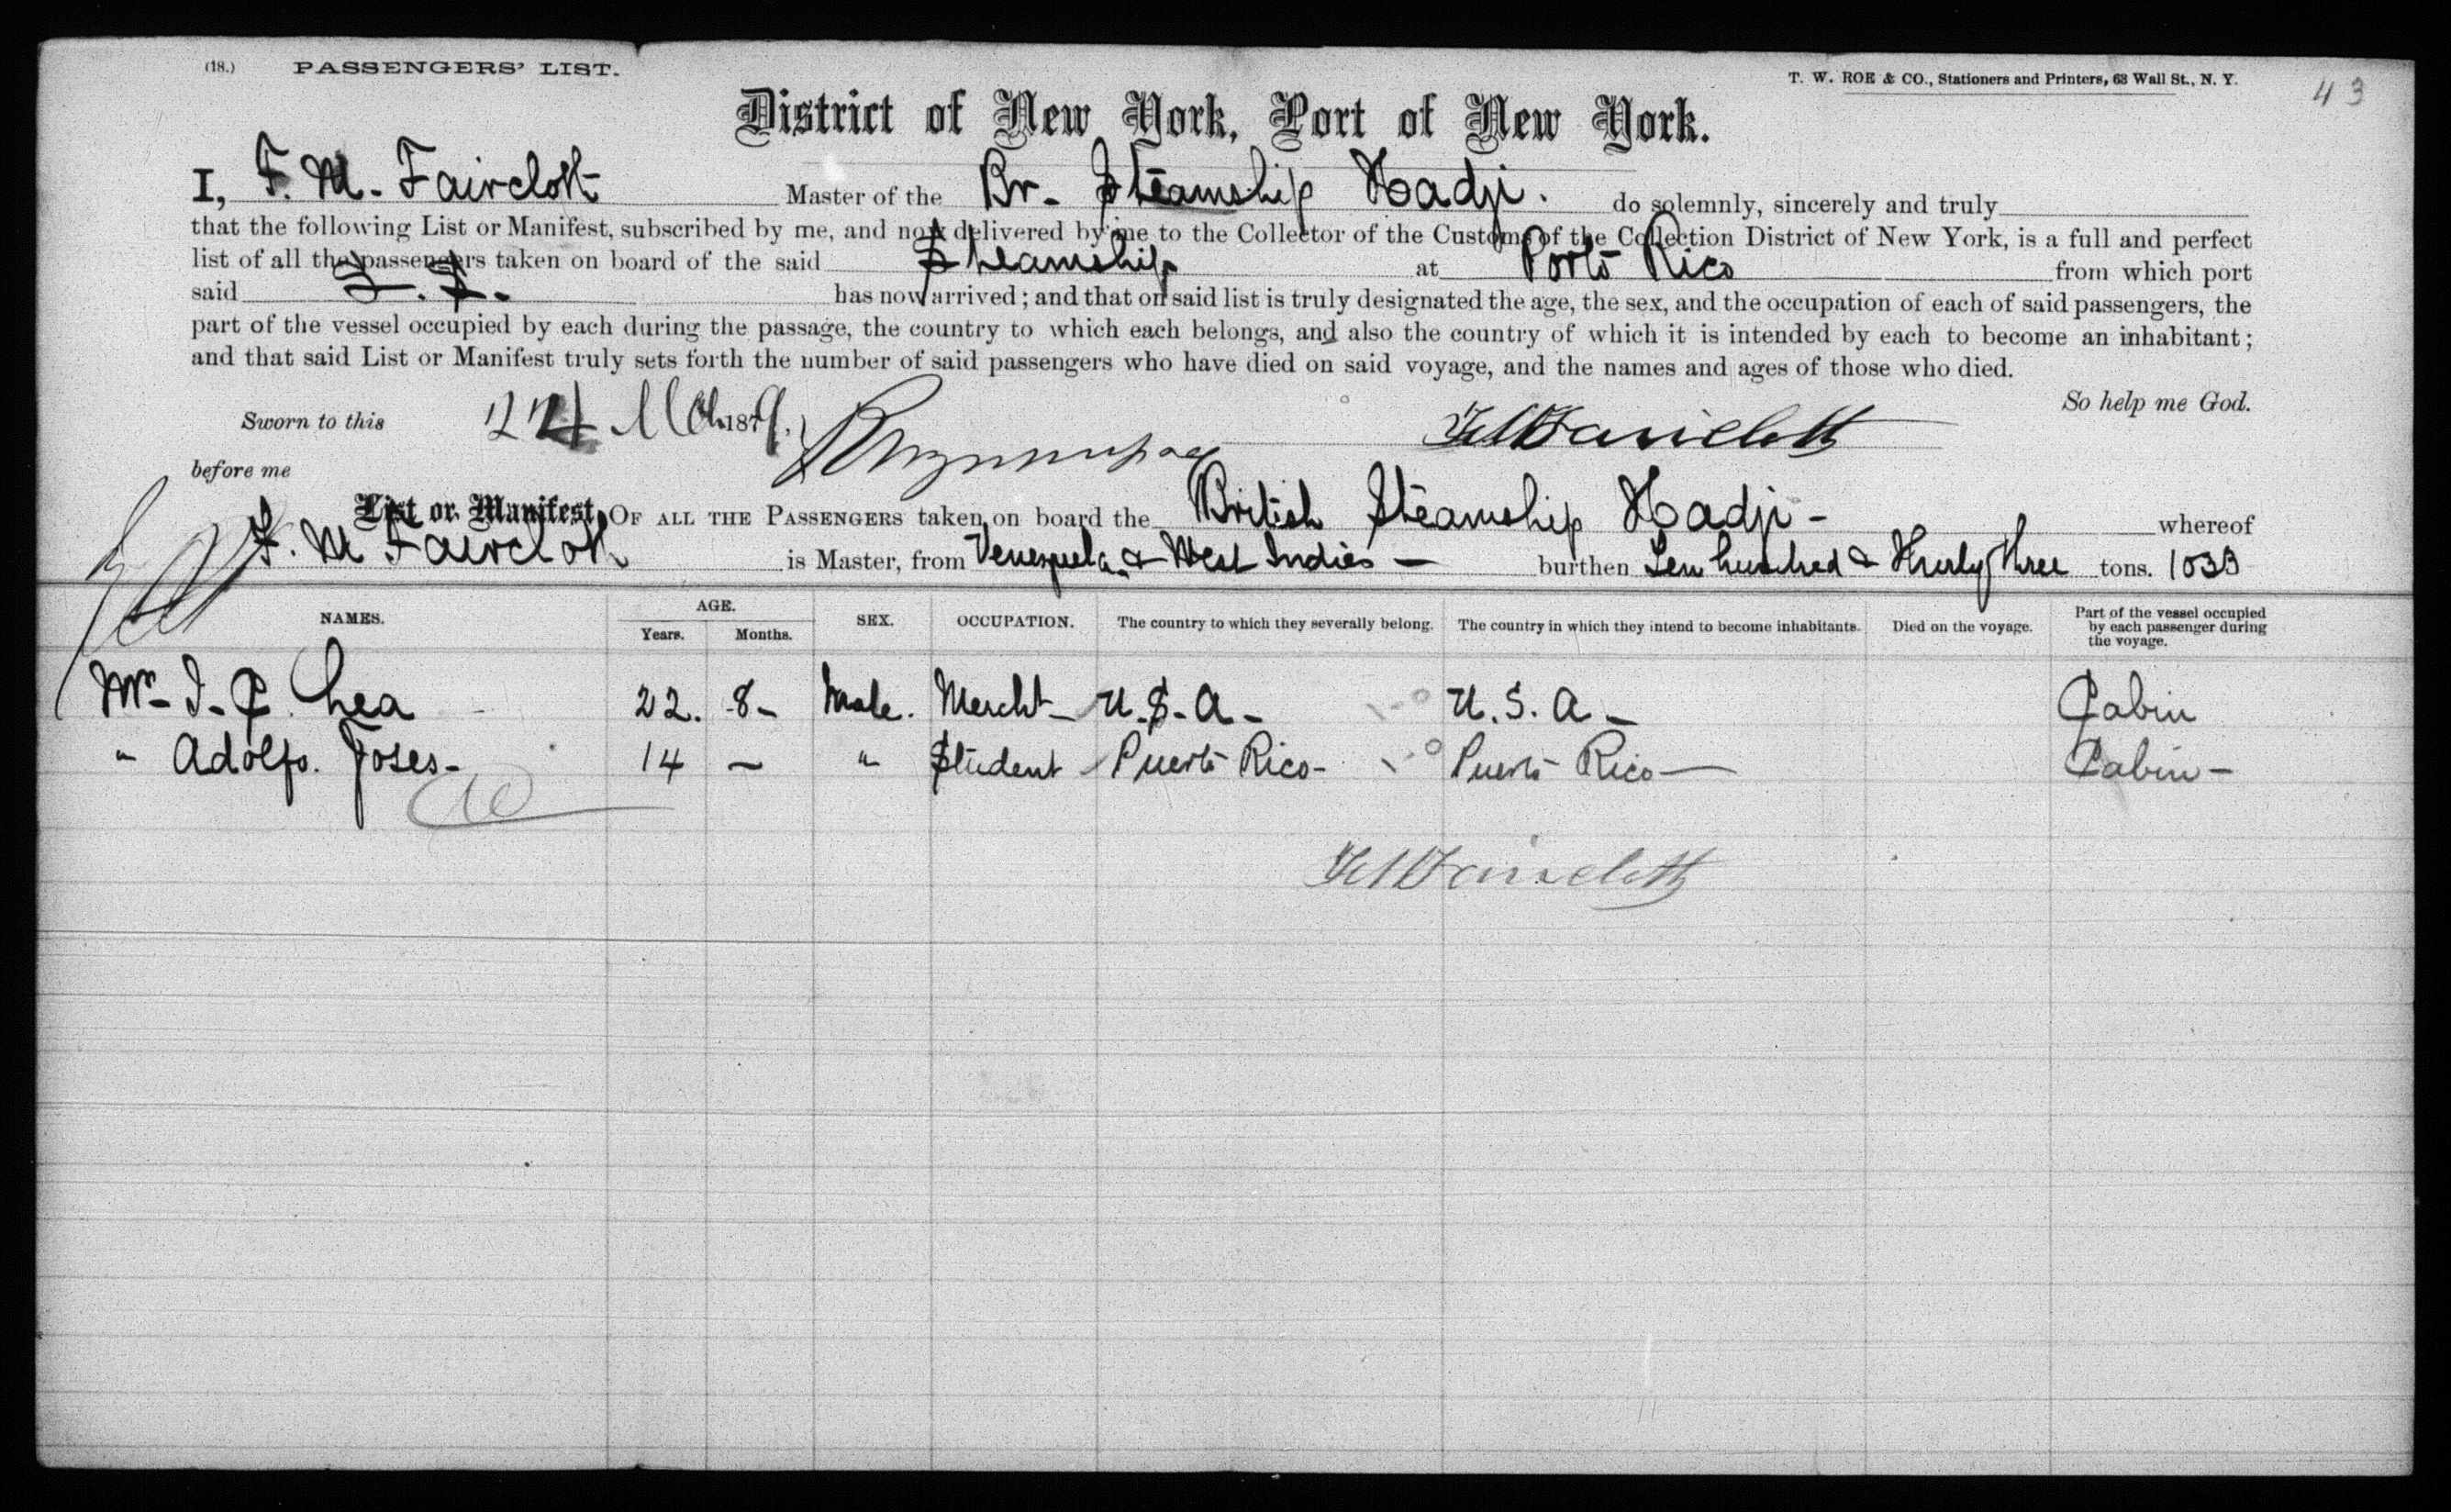 (18.) PASSENGERS' LIST.
T. W. ROE & CO., Stationers and Printers, 63 Wall St., N. Y.
43
District of New York, Port of New York.
I, F. M. Faircloth Master of the Br. Steamship Hadji. do solemnly, sincerely and truly
that the following List or Manifest, subscribed by me, and now delivered by me to the Collector of the Customs of the Collection District of New York, is a full and perfect
list of all the passengers taken on board of the said Steamship at Porto Rico from which port
said S. S. has now arrived; and that on said list is truly designated the age, the sex, and the occupation of each of said passengers, the
part of the vessel occupied by each during the passage, the country to which each belongs, and also the country of which it is intended by each to become an inhabitant;
and that said List or Manifest truly sets forth the number of said passengers who have died on said voyage, and the names and ages of those who died.
So help me God.
Sworn to this 24 Mch 1879.
FM Faircloth
before me
List or Manifest, OF ALL THE PASSENGERS taken on board the British Steamship Hadji - whereof
F. M Faircloth is Master, from Venezuela & West Indies — burthen Ten hundred & Thirty three tons. 1033
NAMES. AGE. Years. Months. SEX. OCCUPATION. The country to which they severally belong. The country in which they intend to become inhabitants. Died on the voyage. Part of the vessel occupied by each passenger during the voyage.
Mr- J. C. Lea 22. 8- Male. Mercht- U.S.A- U.S.A- Cabin
" Adolfo. Joses- 14 — " Student Puerto Rico- Puerto Rico— Cabin-
FM Faircloth